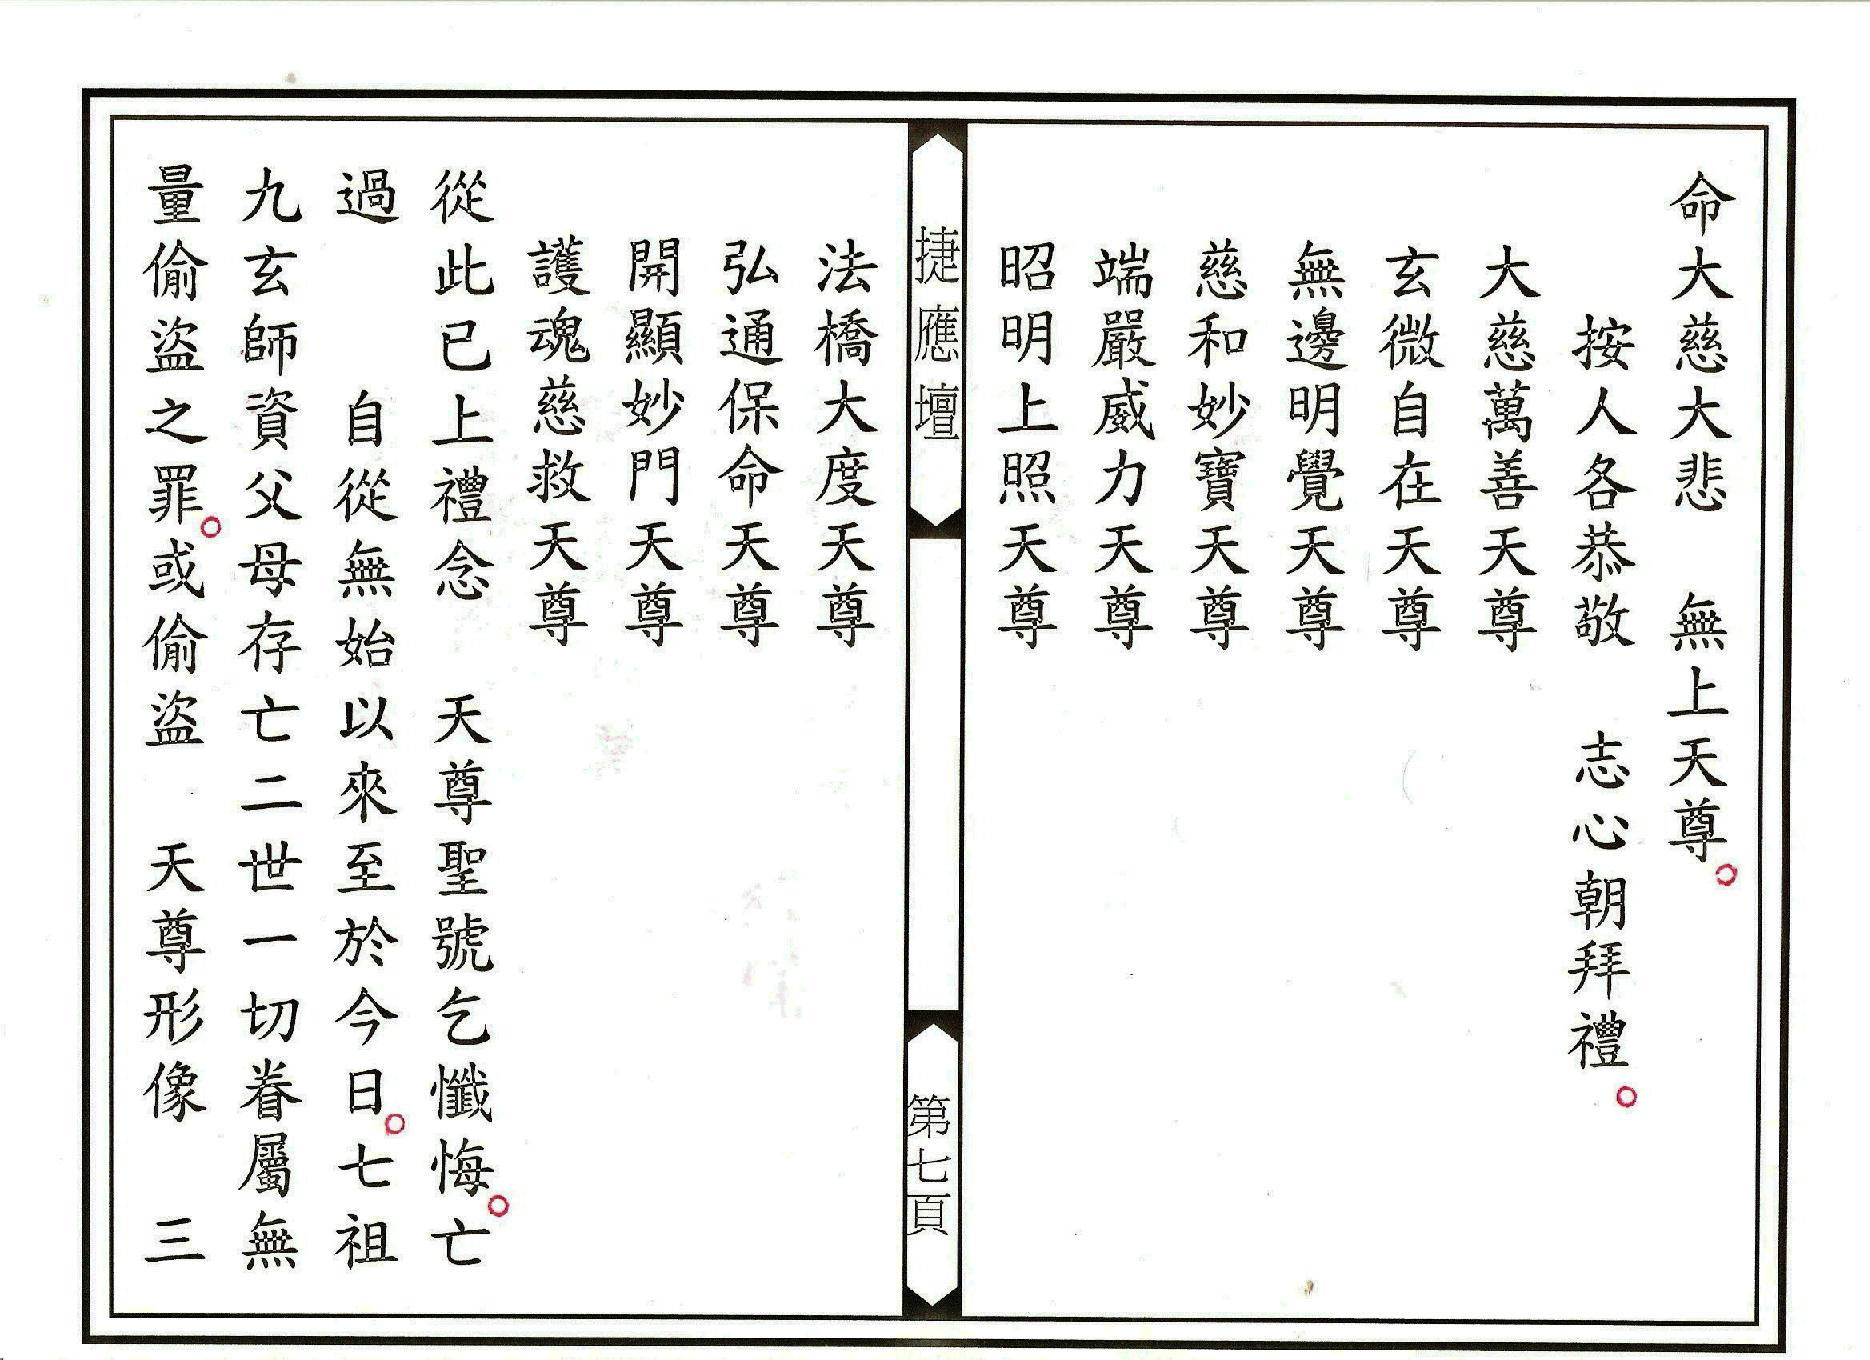 命大慈大悲　無上天尊。
按人各恭敬　志心朝拜禮。
大慈萬善天尊
玄微自在天尊
無邊明覺天尊
慈和妙寶天尊
端嚴威力天尊
昭明上照天尊
捷應壇
第七頁
法橋大度天尊
弘通保命天尊
開顯妙門天尊
護魂慈救天尊
從此已上禮念　天尊聖號乞懺悔。亡
過　　自從無始以來至於今日。七祖
九玄師資父母存亡二世一切眷屬無
量偷盜之罪。或偷盜　天尊形像　三